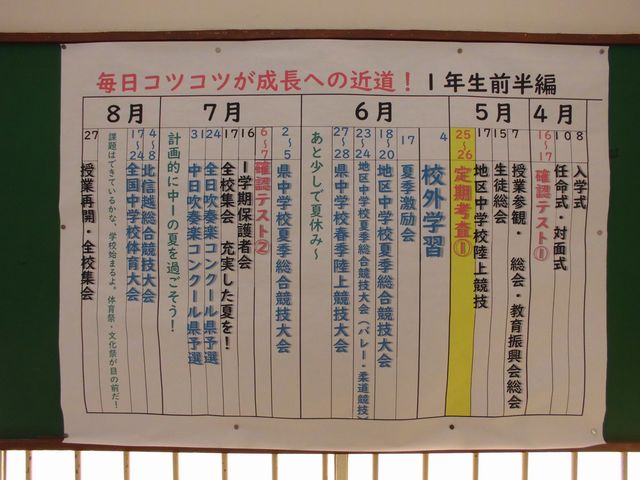 毎日コツコツが成長への近道！ 1年生前半編
4月
8 入学式
10 任命式・対面式
16～17 確認テスト①
5月
7 授業参観・総会・教育振興会総会
15 生徒総会
17 地区中学校陸上競技
25～26 定期考査①
6月
4 校外学習
17 夏季激励会
18～20 地区中学校夏季総合競技大会
23～24 地区中学校夏季総合競技大会（バレー・柔道競技）
27～28 県中学校春季陸上競技大会
あと少しで夏休み～
7月
2～5 県中学校夏季総合競技大会
6～7 確認テスト②
16 1学期保護者会
17 全校集会 充実した夏を！
24 全日吹奏楽コンクール県予選
31 中日吹奏楽コンクール県予選
計画的に中一の夏を過ごそう！
8月
4～8 北信越総合競技大会
17～24 全国中学校体育大会
課題はできているかな、学校始まるよ。体育祭・文化祭が目の前だ！
27 授業再開・全校集会